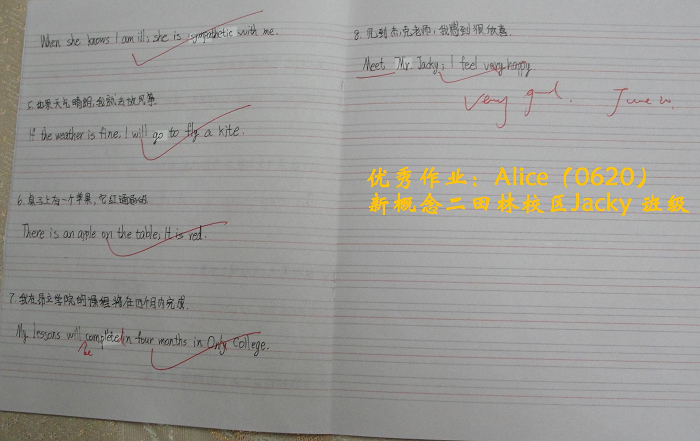 When she knows I am ill, she is sympathetic with me.
5. 如果天气晴朗,我就去放风筝
If the weather is fine, I will go to fly a kite.
6. 桌子上有一个苹果,它红通通的
There is an apple on the table; It is red.
7. 我在昂立学院的课程将在四个月内完成.
My lessons will completed in four months in Only College.
be
8. 见到杰克老师,我感到很欣喜
Meet Mr. Jacky; I feel very happy.
Very good. June 20.
优秀作业:Alice(0620)
新概念二田林校区Jacky 班级